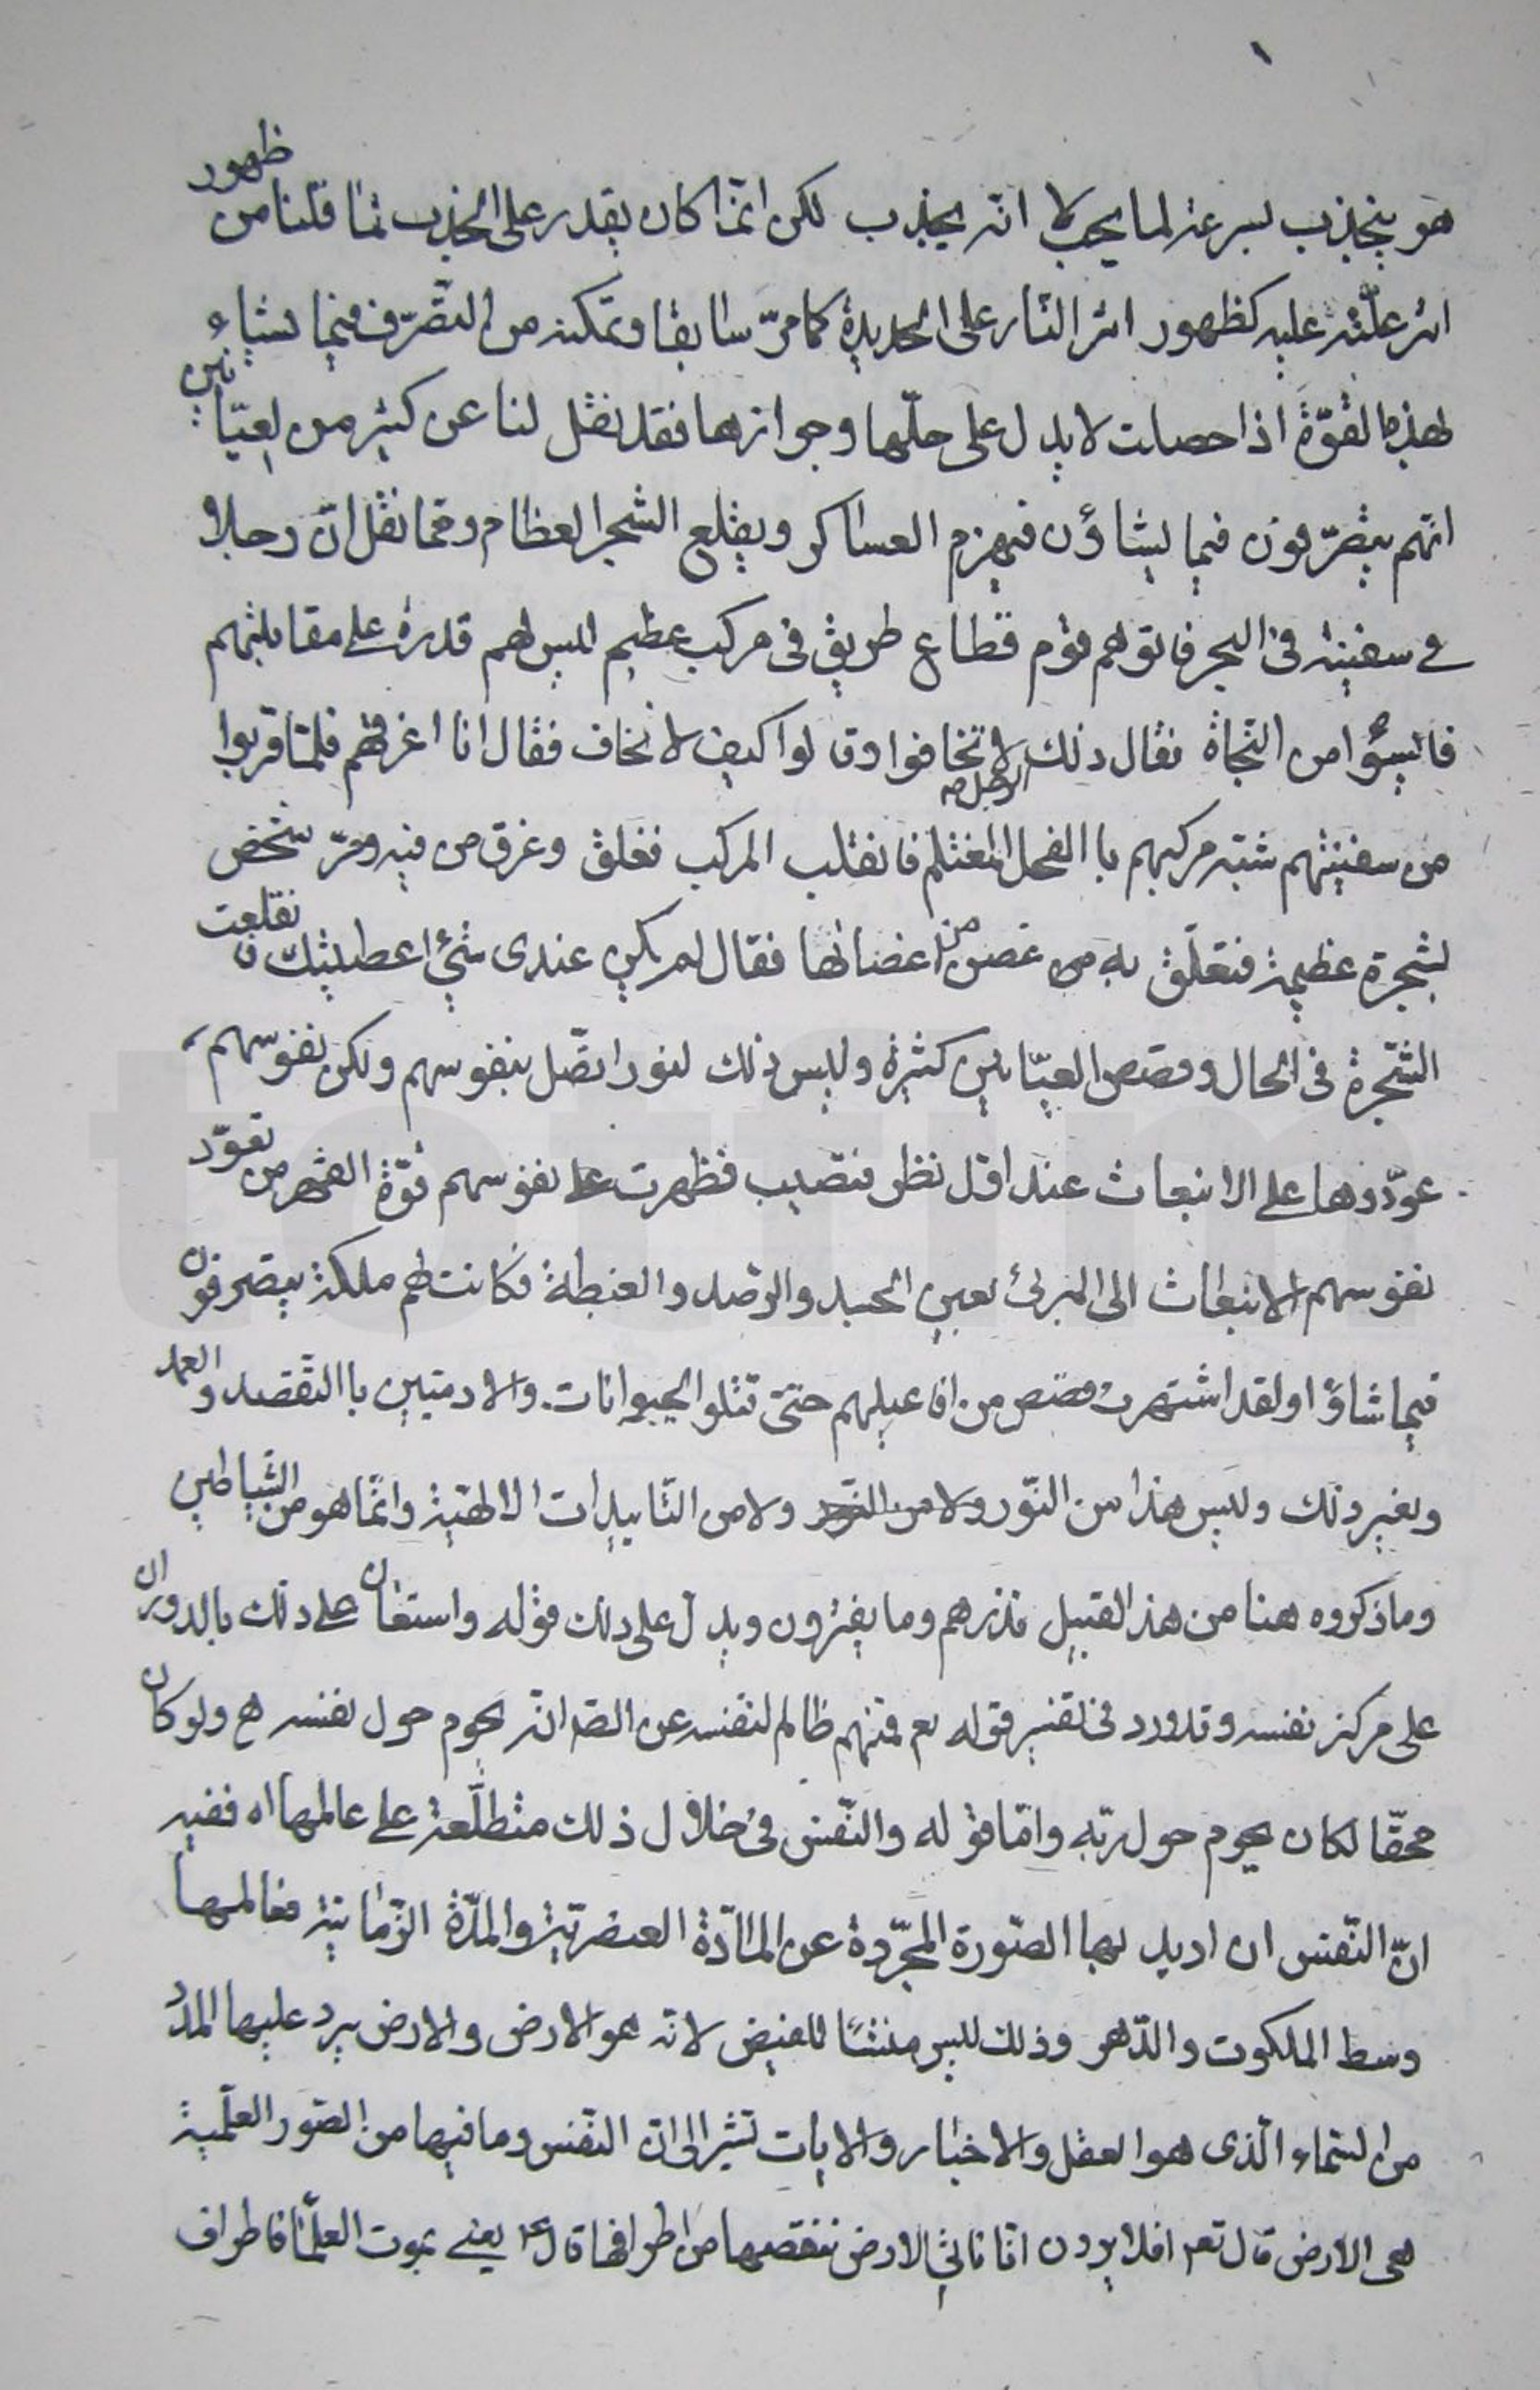 هو ينجذب بسرعة لما يحب لا انه يجذب لكن انما كان يقدر على الجذب لما قلنا من ظهور
اثر علّته عليه كظهور اثر النار على الحديدة كما مرّ سابقا وتمكنه من التصّرف فيما يشاء
لهذه القوّة اذا حصلت لا يدل على حلّها وجوازها فقد نقل لنا عن كثير من لعيّانين
انهم يتصرّفون فيما يشاؤن فيهزم العساكر ويقلع الشجر العظام ومما نقل انّ رجلا
في سفينة في البحر فاتوهم قوم قطاع طريق في مركب عظيم ليس لهم قدرة على مقابلتهم
فايسؤا من النّجاة فقال ذلك الرجل لا تخافوا وقالوا كيف لا نخاف فقال انا اغرقهم فلمّا قربوا
من سفينتهم شبّه مركبهم باالفحل المغتلم فانقلب المركب فغلق وغرق من فيه ومرّ شخص
بشجرة عظيمة فتعلّق به من غصن من اغصانها فقال لم يكن عندى شئ اعطيتك فقلعت
الشّجرة في الحال وقصص العيّانين كثيرة وليس ذلك لنور اتصّل بنفوسهم ولكن نفوسهم
عوّدوها على الانبعاث عند اوّل نظر فتصيب فظهرت على نفوسهم قوّة القهر من تعوّد
نفوسهم الانبعاث الى المرئ بعين الحسد والرّصد والغبطة فكانت لهم ملكة يتصرفون
فيما شاؤا ولقد اشتهرت قصص من افاعيلهم حتى قتلوا الحيوانات والادميّين باالتقصد والعمد
وبغير ذلك وليس هذا من النّور ولا من التأييدات الالهيّة وانّما هو من الشّياطين
وما ذكروه هنا من هذ القبيل فذرهم وما يفترون ويدل على ذلك قوله واستعان على ذلك بالدوران
على مركز نفسه وقد ورد في تفسير قوله تع فمنهم ظالم لنفسه عن الصّ انّه يحوم حول نفسه ح ولو كان
محقّا لكان يحوم حول ربّه وامّا قوله والنّفس في خلال ذلك متطلّعة على عالمها اه ففيه
انّ النّفس ان اريد بها الصّورة المجرّدة عن المادّة العنصريّة والمدّة الزّمانيّة فعالمها
وسط الملكوت والدّهر وذلك ليس منشئا للفيض لانه هو الارض والارض يرد عليها المدد
من السّماء الّذى هو العقل والاخبار والايات تشير الى انّ النّفس وما فيها من الصّور العلميّة
هى الارض قال تعه افلا يرون انّا ناتي الارض ننقصها من اطرافها قال ع يعني بموت العلمآء فاطراف